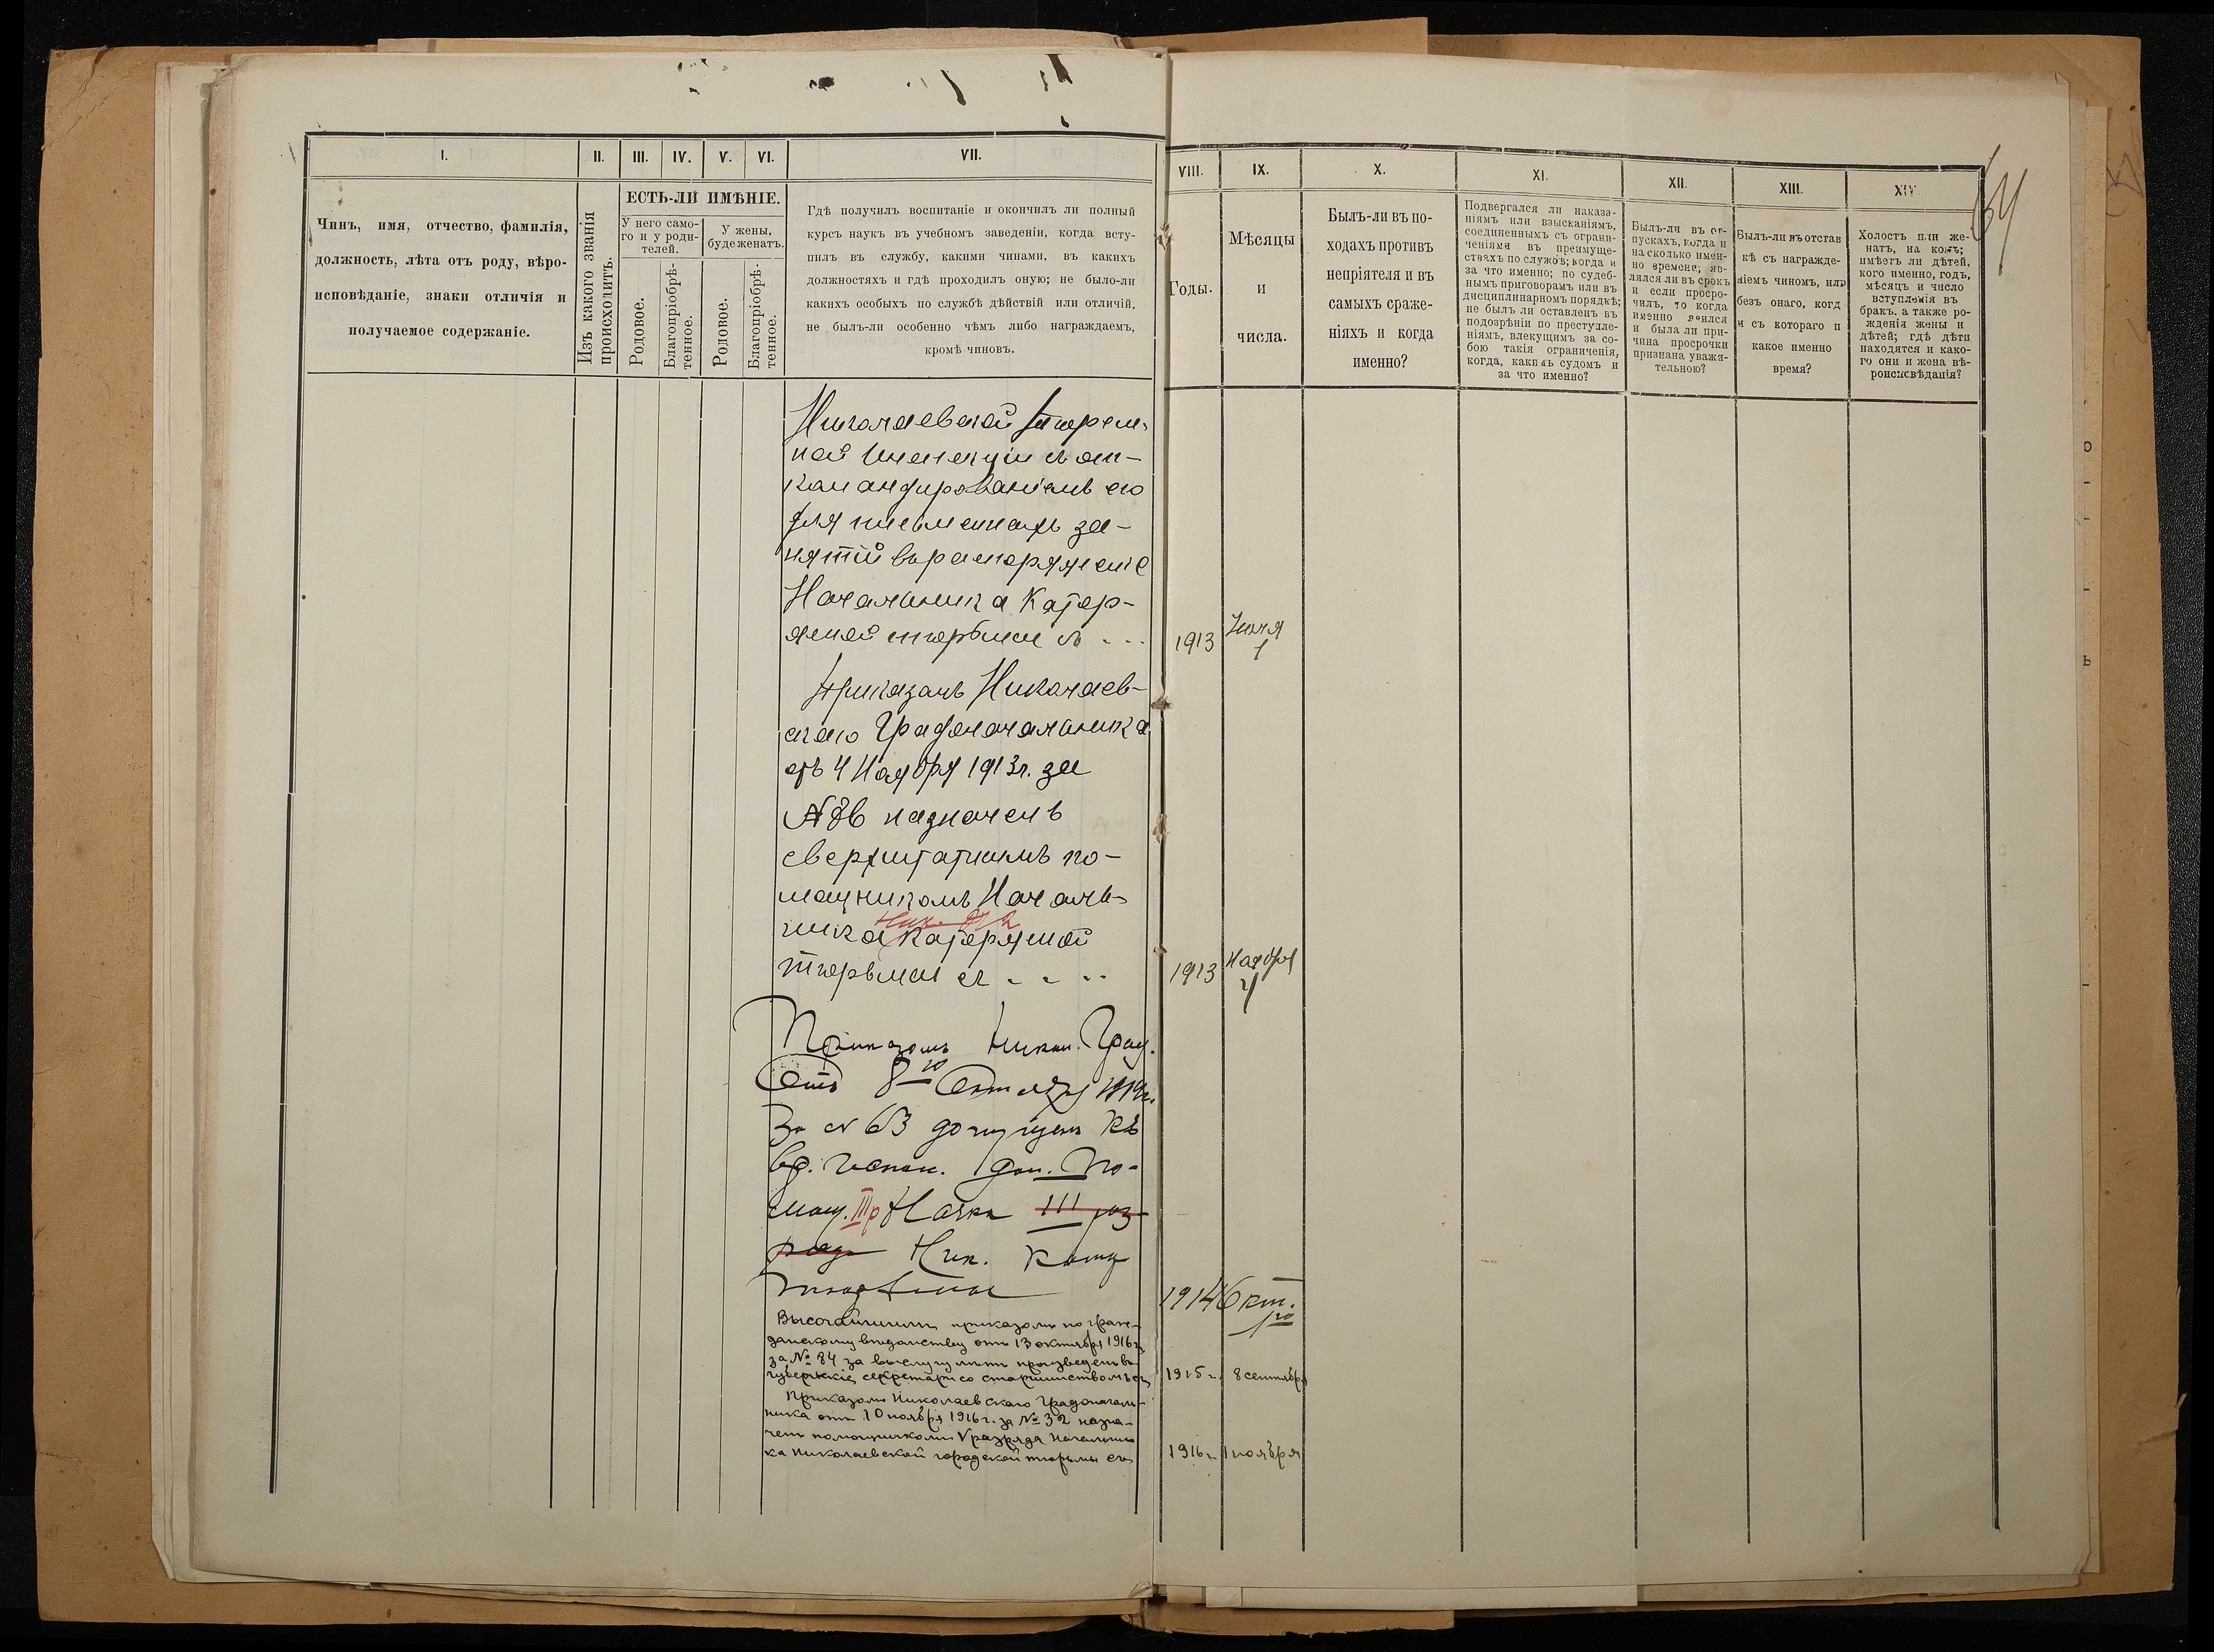 I. II. III. IV. V. VI. VII. VIII. IX. X. XI. XII. XIII. XIV.
Чинъ, имя, отчество, фамилія,
должность, лѣта отъ роду, вѣро-
исповѣданіе, знаки отличія и
получаемое содержаніе.
Изъ какого званія
происходитъ.
ЕСТЬ-ЛИ ИМѢНІЕ.
У него само-
го и у роди-
телей.
У жены,
буде женатъ.
Родовое.
Благопріобрѣ-
тенное.
Родовое.
Благопріобрѣ-
тенное.
Гдѣ получилъ воспитаніе и окончилъ ли полный
курсъ наукъ въ учебномъ заведеніи, когда всту-
пилъ въ службу, какими чинами, въ какихъ
должностяхъ и гдѣ проходилъ оную; не было-ли
какихъ особыхъ по службѣ дѣйствій или отличій,
не былъ-ли особенно чѣмъ либо награждаемъ,
кромѣ чиновъ.
Годы.
Мѣсяцы
и
числа.
Былъ-ли въ по-
ходахъ противъ
непріятеля и въ
самыхъ сраже-
ніяхъ и когда
именно?
Подвергался ли наказа-
ніямъ или взысканіямъ,
соединеннымъ съ ограни-
ченіями въ преимуще-
ствахъ по службѣ; когда и
за что именно; по судеб-
нымъ приговорамъ или въ
дисциплинарномъ порядкѣ;
не былъ ли оставленъ въ
подозрѣніи по преступле-
ніямъ, влекущимъ за со-
бою такія ограниченія,
когда, какимъ судомъ и
за что именно?
Былъ-ли въ от-
пускахъ, когда и
на сколько имен-
но времени; яв-
лялся ли въ срокъ
и если просро-
чилъ, то когда
именно явился
и была ли при-
чина просрочки
признана уважи-
тельною?
Былъ-ли въ отстав
кѣ съ награжде-
ніемъ чиномъ, или
безъ онаго, когд
и съ котораго п
какое именно
время?
Холостъ или же-
натъ, на комъ;
имѣетъ ли дѣтей,
кого именно, годъ,
мѣсяцъ и число
вступленія въ
бракъ, а также ро-
жденія жены и
дѣтей; гдѣ дѣти
находятся и како-
го они и жена вѣ-
роисповѣданія?
Николаевской Тюрем-
ной Инспекціи съ от-
командированіемъ его
для письменныхъ за-
нятій въ распоряженіе
Начальника Катор-
жной тюрьмы съ - - - 1913 Іюня 1
Приказомъ Николаев-
скаго Градоначальника
отъ 4 Ноября 1913 г. за
№ 36 назначенъ
сверхштатнымъ по-
мощникомъ Началь-
ника Каторжной
тюрьмы съ - - - - 1913 Ноября 4
Приказомъ Никол. Град.
Отъ 8го Октября 1914 г.
За № 63 допущенъ къ
вр. Испол. дол. По-
мощ. III р Начка III раз-
ряда Ник. Катор
тюрьмы 1914 Окт. 1го
Высочайшимъ приказомъ по граж-
данскому вѣдомству отъ 13 октября 1916 г.
за № 84 за выслугу лѣтъ произведенъ въ
губернскіе секретари со старшинствомъ съ 1915 г. 8 сентября
Приказомъ Николаевскаго Градоначаль-
ника отъ 10 ноября 1916 г. за № 32 назна-
ченъ помощникомъ V разряда Начальни
ка Николаевской городской тюрьмы съ 1916 г. 1 ноября